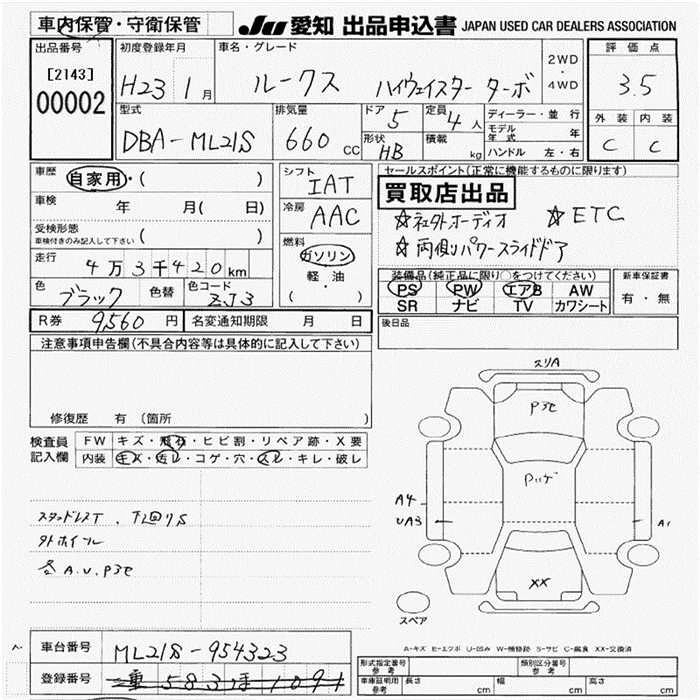 車内保管・守衛保管 JU 愛知 出品申込書 JAPAN USED CAR DEALERS ASSOCIATION
出品番号 [2143] 00002
初度登録年月 H23 1月
車名・グレード ルークス ハイウェイスター ターボ
2WD・4WD
評価点 3.5
外装 内装
C C
型式 DBA-ML21S
排気量 660 CC
ドア 5
定員 4人
形状 HB
積載 kg
ディーラー・並行
モデル年式 年
ハンドル 左・右
車歴 自家用・( )
車検 年 月( 日)
受検形態 ( )
車検付きのみ記入して下さい
走行 4万3千420km
色 ブラック 色替 色コード ZJ3
シフト IAT
冷房 AAC
燃料 ガソリン
軽・油
( )
セールスポイント(正常に機能するものに限ります)
買取店出品
☆社外オーディオ ☆ETC
☆両側パワースライドドア
装備品(純正品に限り○をつけてください)
PS PW エアB AW
SR ナビ TV カワシート
新車保証書
有・無
R券 9,560円 名変通知期限 月 日
後日品
注意事項申告欄(不具合内容等は具体的に記入して下さい)
修復歴 有 (箇所 )
検査員記入欄 FW キズ・飛石・ヒビ割・リペア跡・X要
内装 キズ・汚レ・コゲ・穴・スレ・キレ・破レ
スタッドレスT、下回りS
外ホイール
各A.U.P3セ
スリA
P3セ
A4
UA3
A1
XX
スペア
A-キズ E-エクボ U-凹み W-補修跡 S-サビ C-腐食 XX-交換済
車台番号 ML21S-954323
登録番号
形式指定番号 参考 類別区分番号 参考
車庫証明用 参考 長さ cm 幅 cm 高さ cm